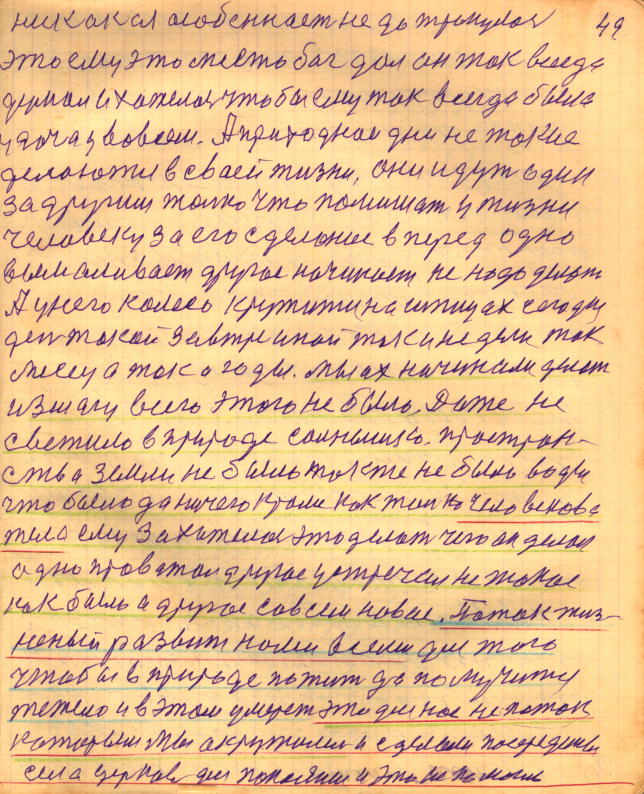 никакая особенность не дотронулась 49
Это ему это место бог дал он так всегда
думал и хотелось чтобы ему так всегда была
удача у во всем. А приходное дни не такие
делаются в своей жизни, они идут один
за другим только что помишают у жизни
человеку за его сделоние вперед одно
другое начинает не надо делат
А у него колесо кружити на шпицах сегодня
ден такой завтре иной так и недели так
месеца так а годы. Мы ах начинали делат
из шагу всего этого не было. Даже не
светило в природе солнышко. простран-
ства земли не было также не было воды
что было да ничего кроме как только человекова
тела ему захотелося это делат чего он делал
одно проважал другое устречал не такое
как было а другое совсем новое. Паток жиз-
неный развит нами всеми для того
чтобы в природе пожит да помучится
тежело и в этом умерет это для нас не паток
которым мы окружили и сделали посередине
села церков для и это не помогли